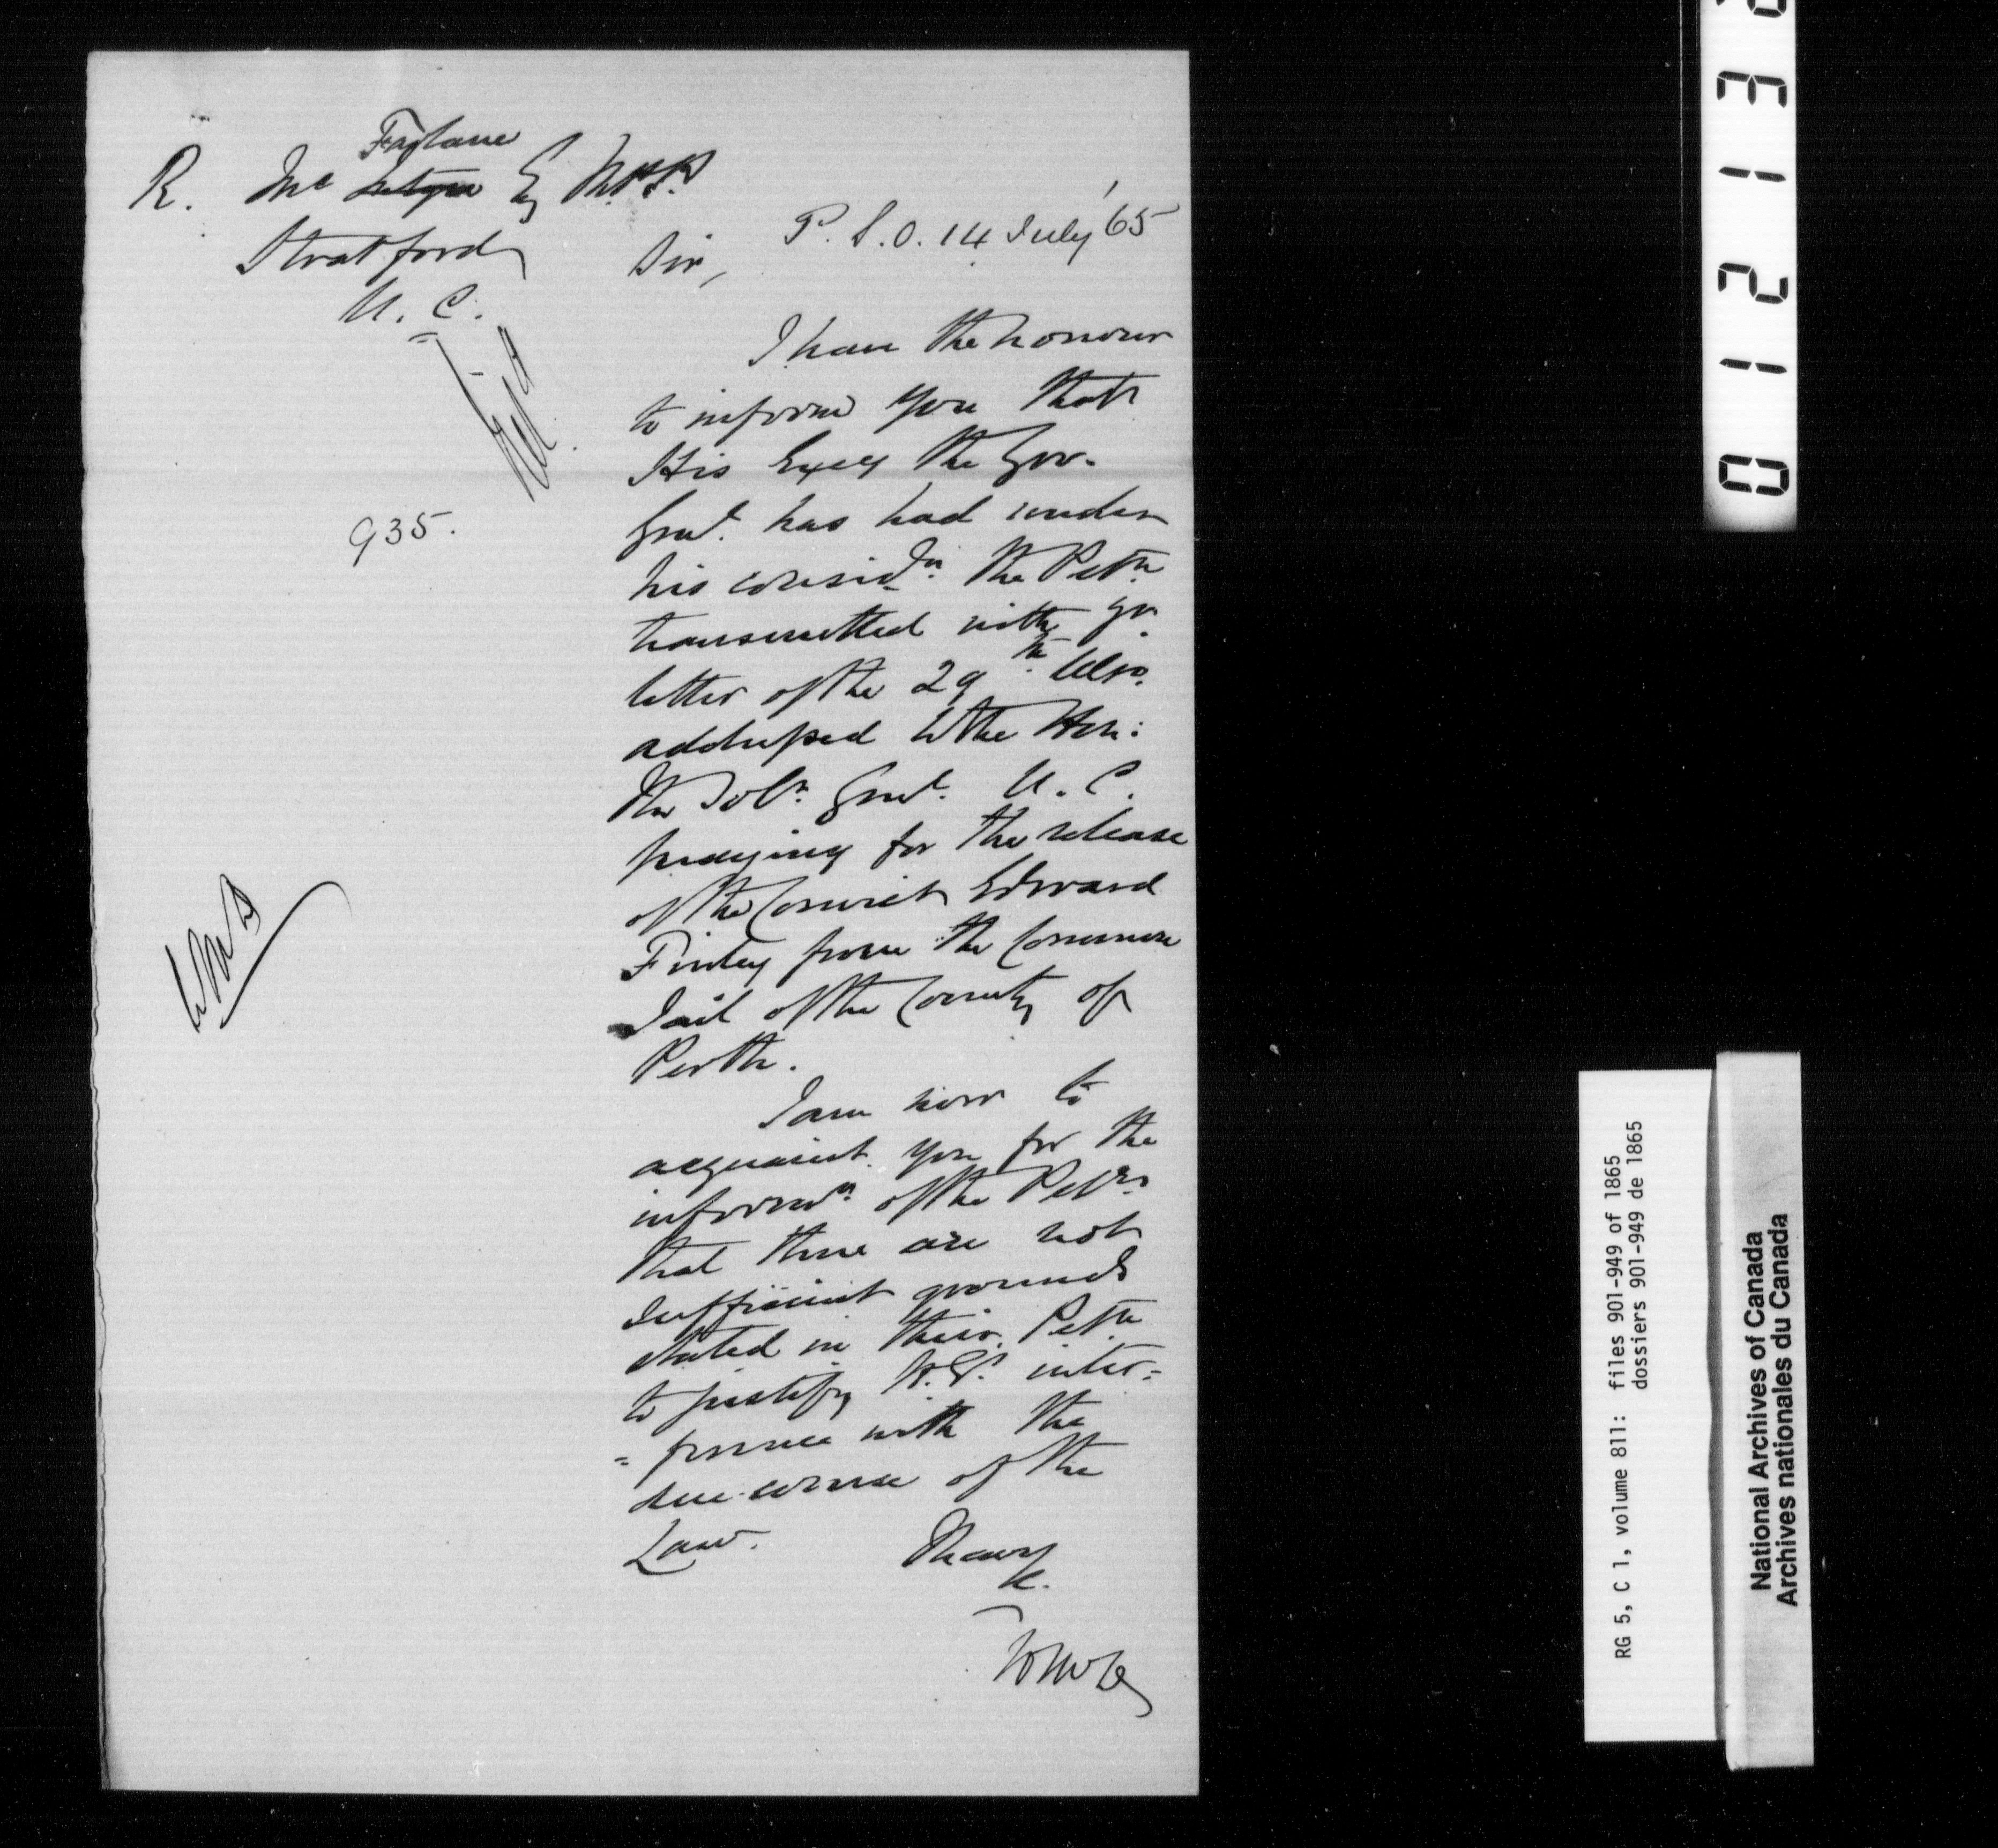 R. Mc Farlane Esq M.P.P.
Stratford
U. C.
P.S.O. 14 July '65
Sir,
I have the honour
to inform you that
His Excy the Gov.
Genl. has had under
his considn. the Petn.
transmitted with yr.
letter of the 29th. Ulto.
addressed to the Hon:
the Solr. Genl. U. C.
praying for the release
of the Convict Edward
Finley from the Common
Jail of the County of
Perth.
I am now to
acquaint you for the
informn. of the Petrs.
that there are not
sufficient grounds
stated in their Petn.
to justify H.E. inter=
=ference with the
due course of the
Law.
I have
&c.
935.
0 1 2 1 3
RG 5, C 1, volume 811: files 901-949 of 1865
dossiers 901-949 de 1865
National Archives of Canada
Archives nationales du Canada